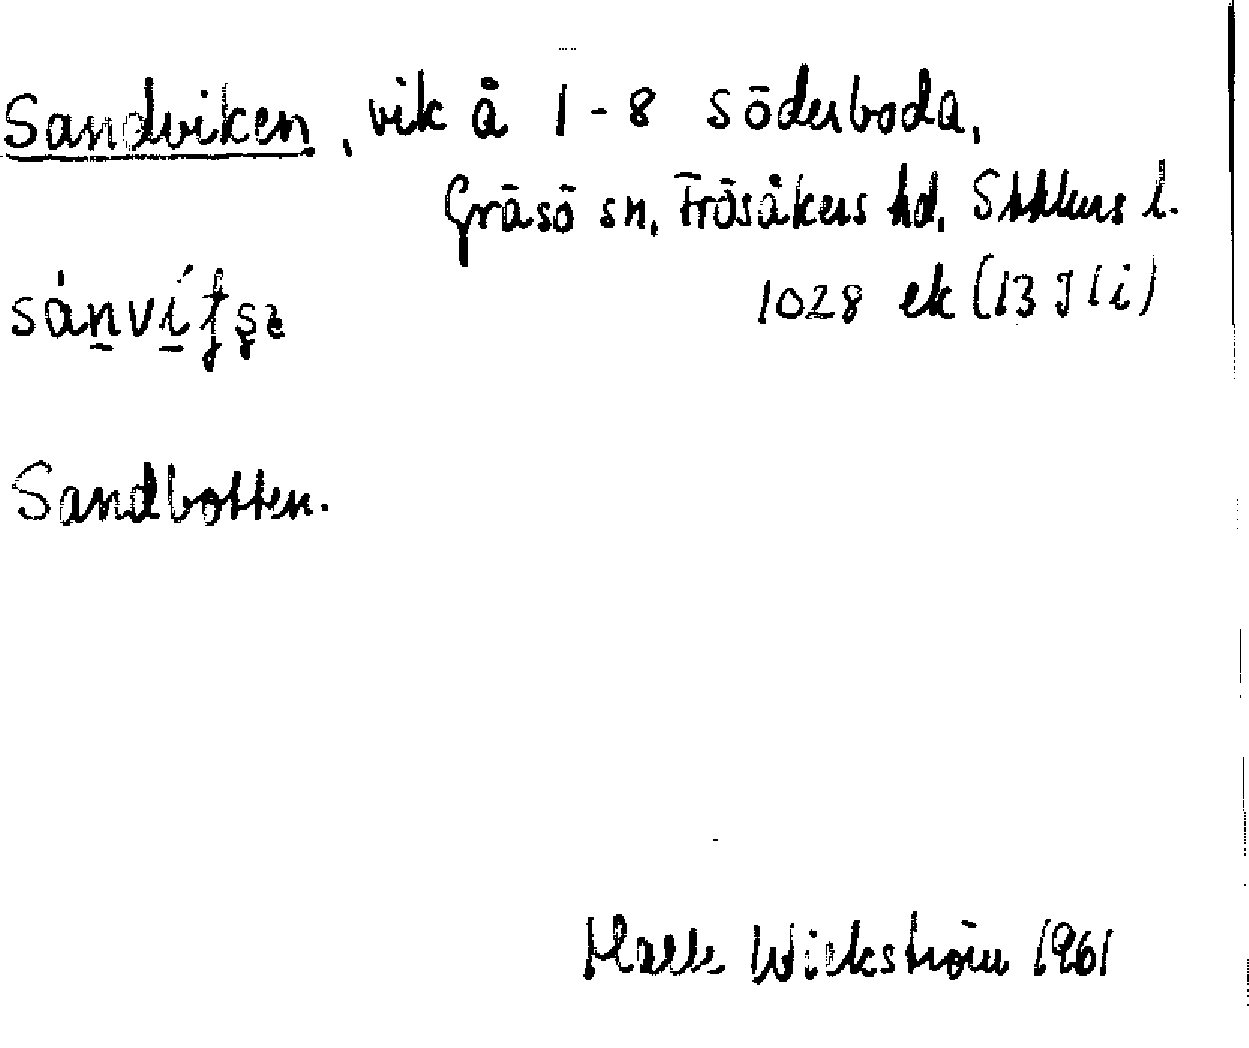 Sandviken, vik å 1-8 Söderboda,
Gräsö sn, Frösåkers hd, Sthlms l.
1028 ek (13 I 1 i)
Sandbotten.
Wickström 1961